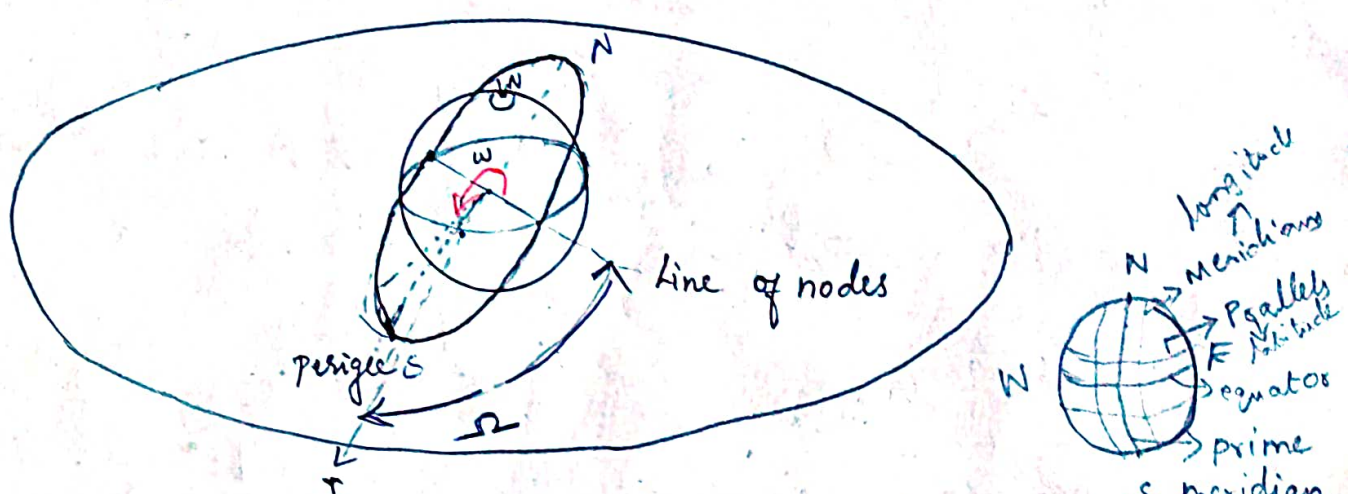 N
N
ω
Line of nodes
perigee S
Ω
longitude
Meridians
N
Parallels
latitude
W
E
equator
prime
S meridian